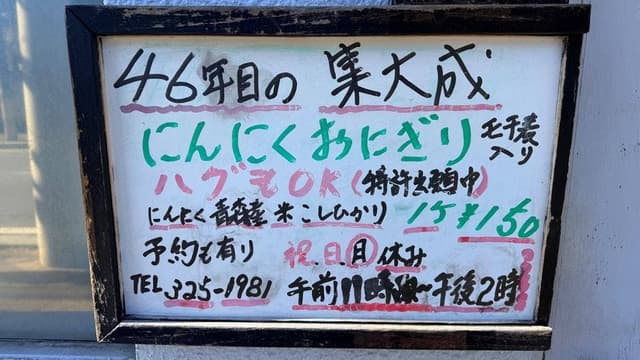 46年目の 集大成
にんにくおにぎり モチ麦入り
ハグもOK(特許出願中)
にんにく 青森産 米 こしひかり 1ケ ¥150
予約も有り 祝.日.月 休み
TEL 325-1981 午前11時~午後2時